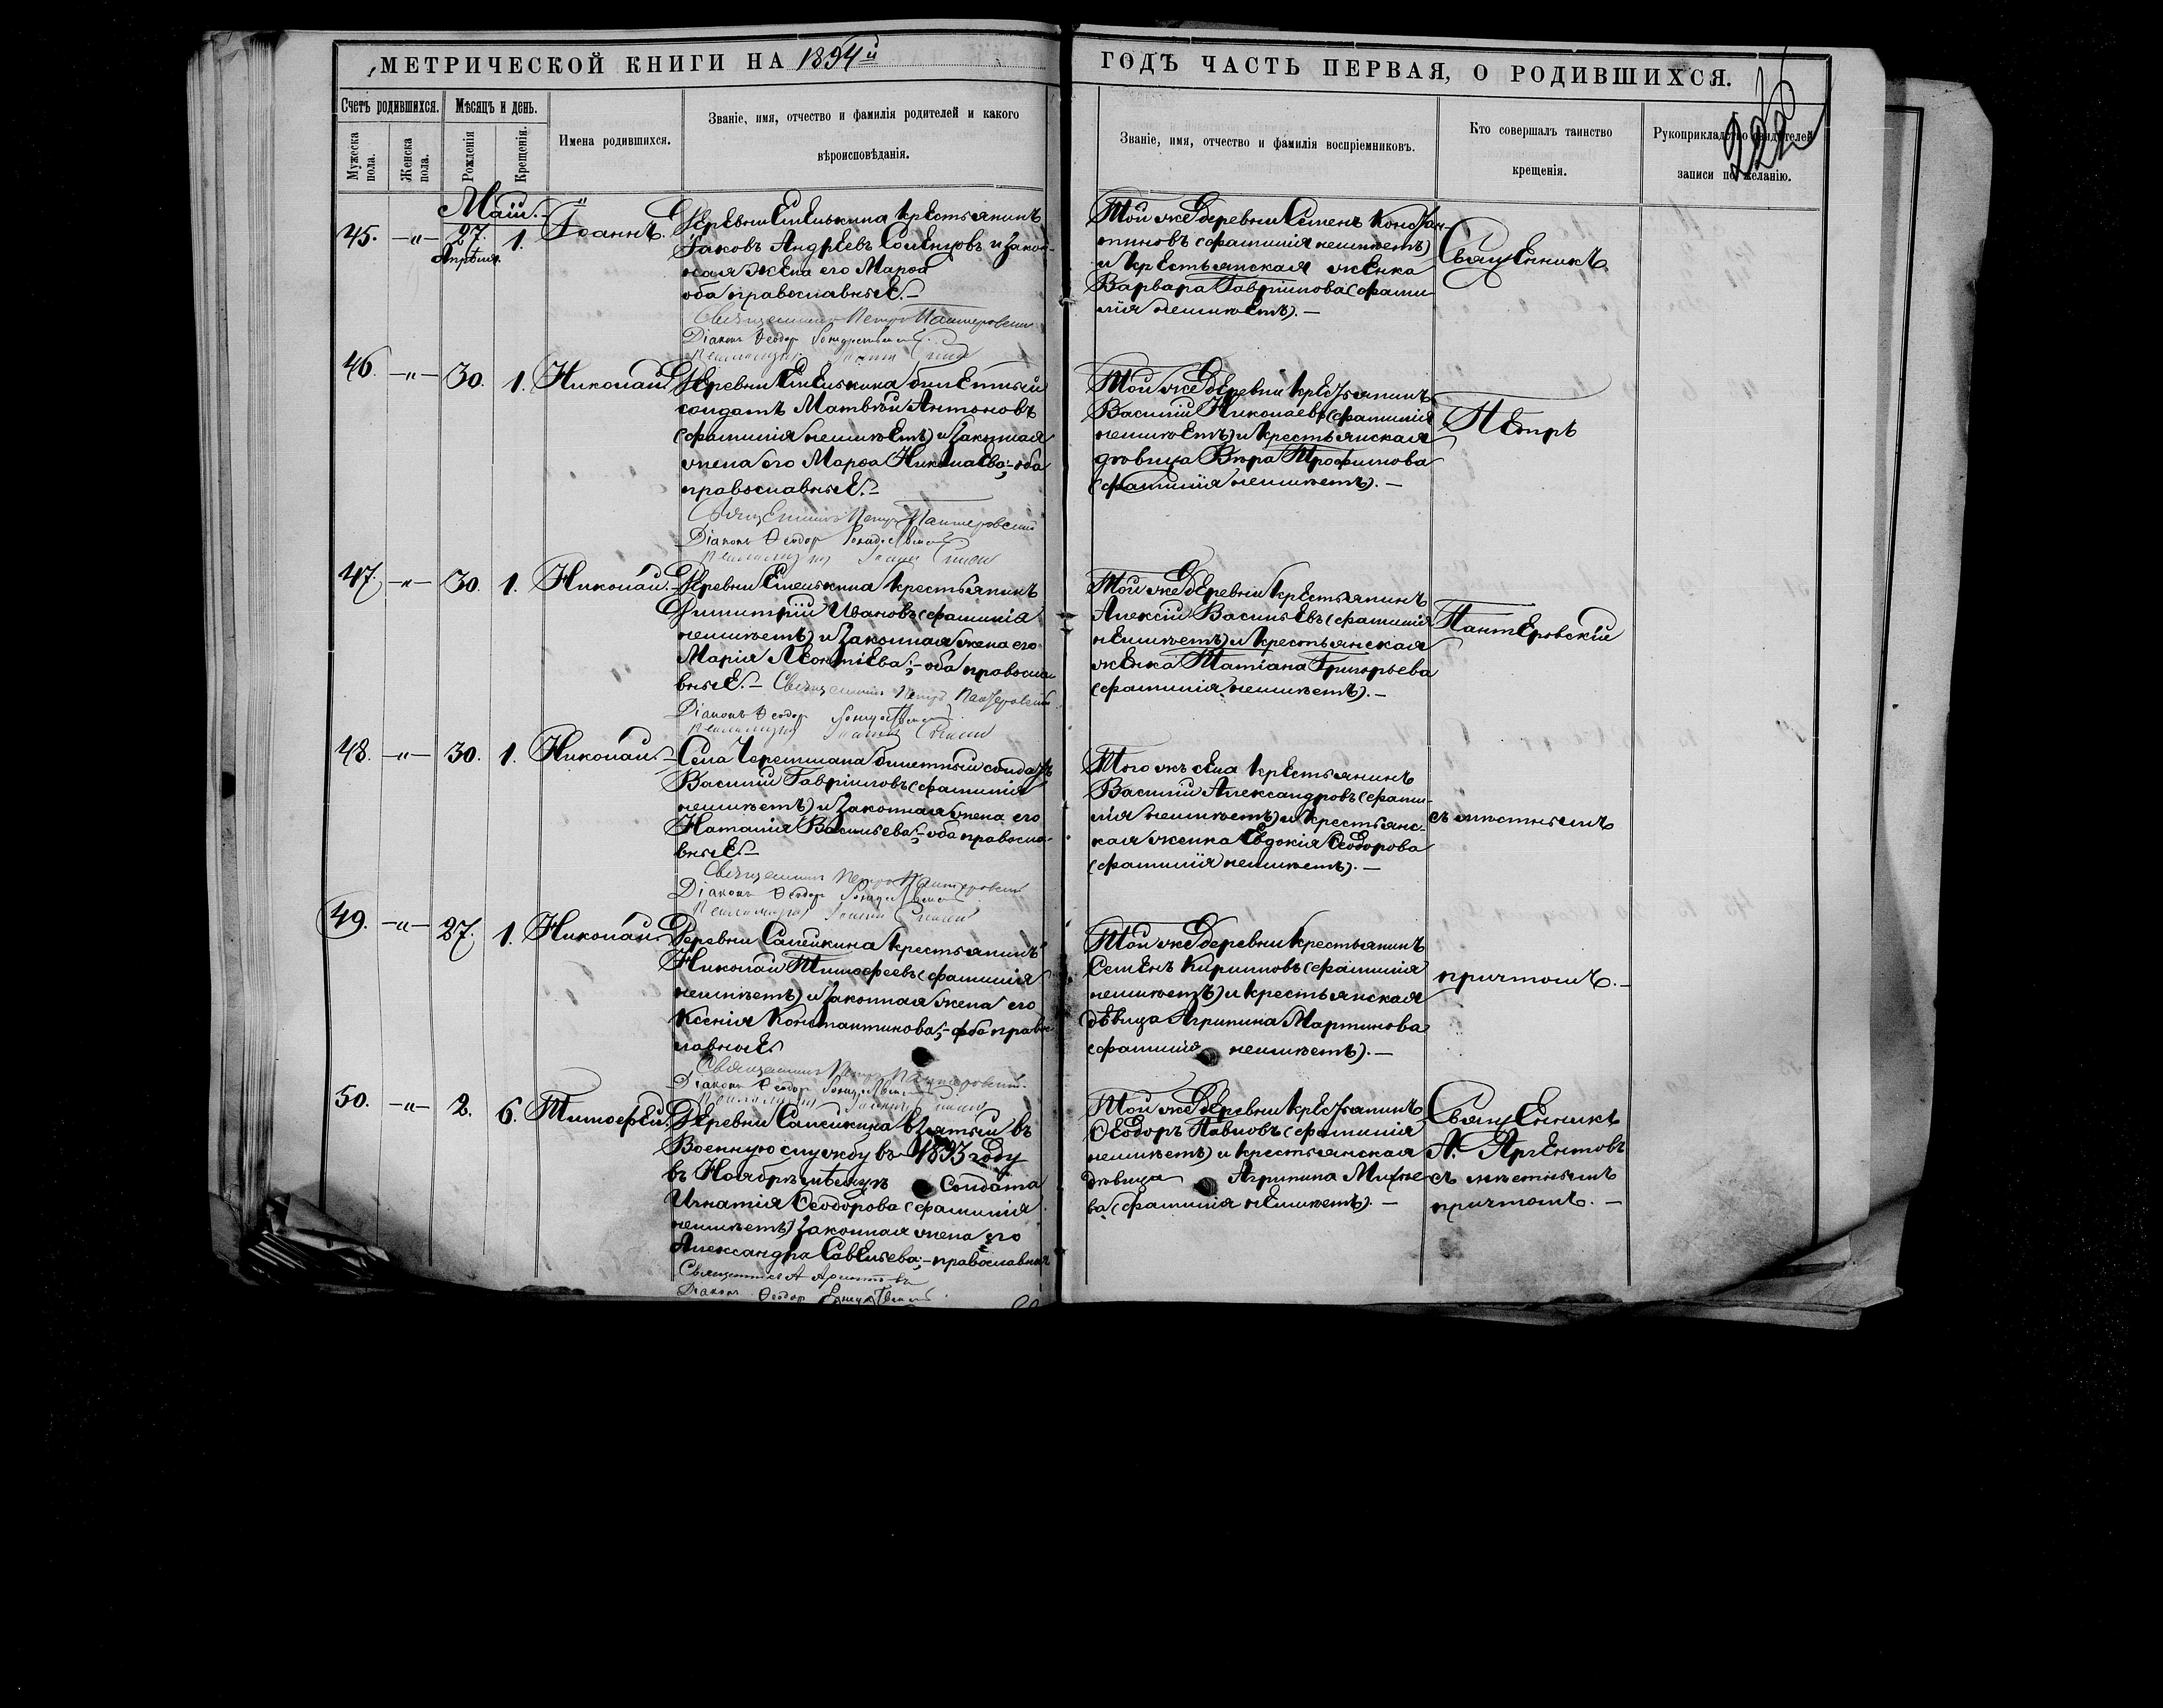 МЕТРИЧЕСКОЙ КНИГИ НА 1894й
ГОДЪ ЧАСТЬ ПЕРВАЯ, О РОДИВШИХСЯ.
Счетъ родившихся.
Мужеска пола.
Женска пола.
Мѣсяцъ и день.
Рожденія
Крещенія.
Имена родившихся.
Званіе, имя, отчество и фамилія родителей и какого
вѣроисповѣданія.
Званіе, имя, отчество и фамилія воспріемниковъ.
Кто совершалъ таинство
крещенія.
Рукоприкладство свидѣтелей
записи по желанію.
Маій.
45. —"— 27. Апрѣля. 1. Іоаннъ.
Деревни Емелькина крестьянинъ
Іаковъ Андреевъ Соленцовъ и закон-
ная жена его Марѳа
оба православные.—
Священникъ Петръ Пантеровскій
Діаконъ Ѳеодоръ
Той же деревни Семенъ Констан-
тиновъ (фамилія неимѣетъ)
и крестьянская женка
Варвара Гавріилова (фами-
лія неимѣетъ).—
Священникъ
46. —"— 30. 1. Николай.
Деревни Емелькина билетный
солдатъ Матвѣй Антоновъ
(фамилія неимѣетъ) и законная
жена его Марѳа Николаева;—оба
православные.—
Священникъ Петръ Пантеровскій
Діаконъ Ѳеодоръ
Той же деревни крестьянинъ
Василій Николаевъ (фамилія
неимѣетъ) и крестьянская
дѣвица Вѣра Трофимова
(фамилія неимѣетъ).—
Петръ
47. —"— 30. 1. Николай.
Деревни Емелькина крестьянинъ
Димитрій Ивановъ (фамилія
неимѣетъ) и законная жена его
Марія Леонтіева;—оба правосла-
вные.— Священникъ Петръ Пантеровскій
Діаконъ Ѳеодоръ
Той же деревни крестьянинъ
Алексій Васильевъ (фамилія
неимѣетъ) и крестьянская
женка Татіана Григорьева
(фамилія неимѣетъ).—
Пантеровскій
48. —"— 30. 1. Николай.
Села Черемшана билетный солдатъ
Василій Гавріиловъ (фамилія
неимѣетъ) и законная жена его
Наталія Васильева;—оба правосла-
вные.—
Священникъ Петръ Пантеровскій
Діаконъ Ѳеодоръ
Того жъ села крестьянинъ
Василій Александровъ (фами-
лія неимѣетъ) и крестьянс-
кая женка Евдокія Ѳеодорова
(фамилія неимѣетъ).—
съ мѣстнымъ
49. —"— 27. 1. Николай.
Деревни Сапейкина крестьянинъ
Николай Тимофеевъ (фамилія
неимѣетъ) и законная жена его
Ксенія Константинова;—оба право-
славные.
Священникъ Петръ Пантеровскій.
Діаконъ Ѳеодоръ
Той же деревни крестьянинъ
Семенъ Кириловъ (фамилія
неимѣетъ) и крестьянская
дѣвица Агрипина Мартинова
(фамилія неимѣетъ).—
причтомъ.—
50. —"— 2. 6. Тимофей.
Деревни Сапейкина взятый въ
Военную службу въ 1893 году
въ Ноябрѣ мѣсяцѣ Солдата
Игнатія Ѳеодорова (фамилія
неимѣетъ) законная жена его
Александра Савельева;—православная
Священникъ А Аргентовъ
Діаконъ Ѳеодоръ
Той же деревни крестьянинъ
Ѳеодоръ Павловъ (фамилія
неимѣетъ) и крестьянская
дѣвица Агрипина Михее-
ва (фамилія неимѣетъ).—
Священникъ
А. Аргентовъ
съ мѣстнымъ
причтомъ.—